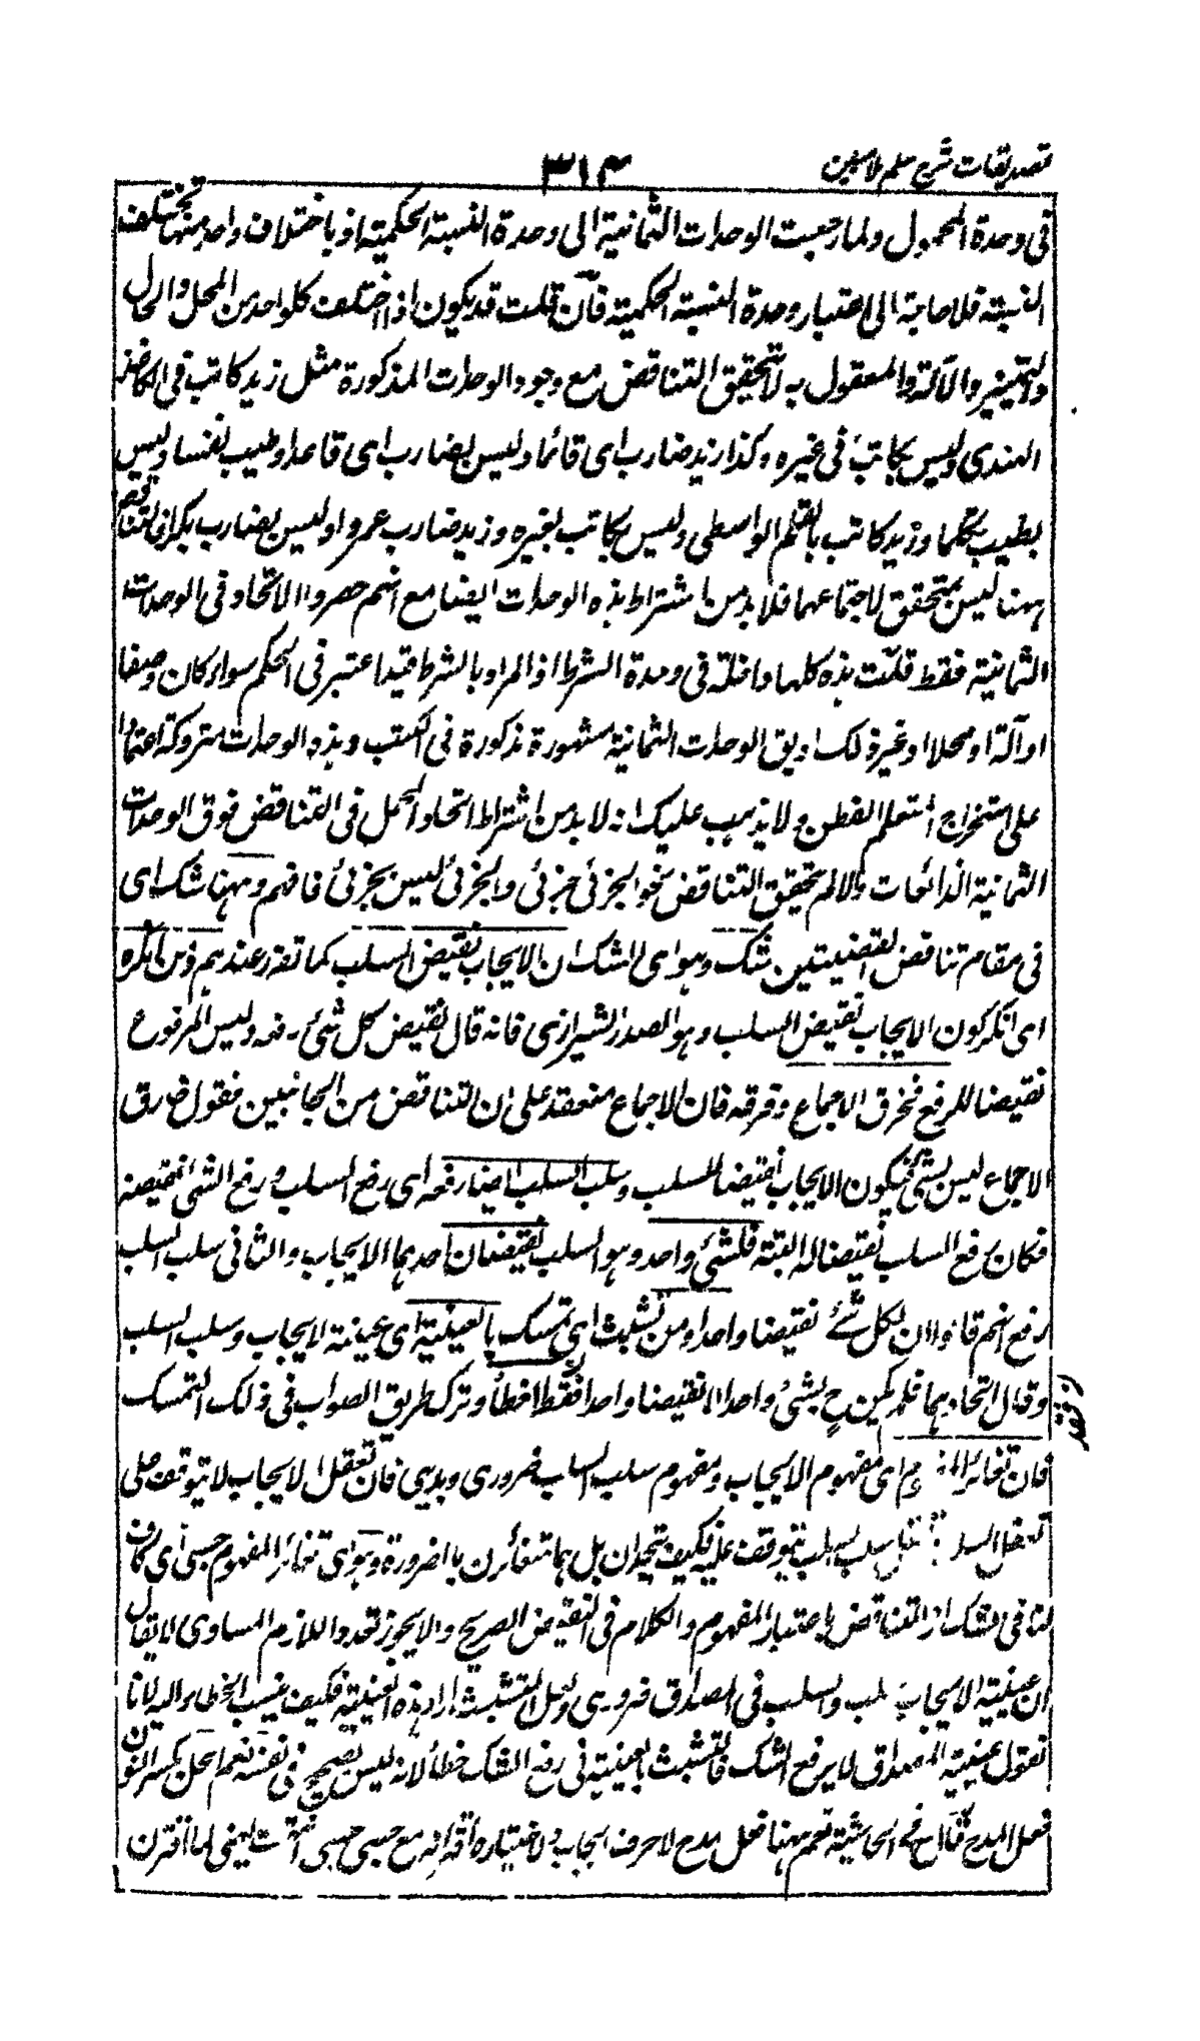 تصديقات شرح سلم ملا مبين
٣١٤
فى وحدة المحمول ولما رجعت الوحدات الثمانية الى وحدة النسبة الحكمية اذ باختلاف واحد منها تختلف
النسبة فلا حاجة الى اعتبار وحدة النسبة الحكمية فان قلت قد يكون اذا اختلف كلواحد من المحل والحال
والتمييز والآلة والمعقول به لا تحقيق التناقض مع وجود الوحدات المذكورة مثل زيد كاتب فى الكاغذ
الهندى وليس بكاتب فى غيره وكذا زيد ضارب اى قائما وليس بضارب اى قاعدا وطبيب نفسا وليس
بطبيب تكلما وزيد كاتب بالقلم الواسطى وليس بكاتب بغيره وزيد ضارب عمروا وليس بضارب بكرا فالتناقض
ههنا ليس بمتحقق لاجتماعهما فلا بد من اشتراط هذه الوحدات ايضا مع انهم حصروا الاتحاد فى الوحدات
الثمانية فقط قلت هذه كلها داخلة فى وحدة الشرط اذ المراد بالشرط قيد اعتبر فى الحكم سواء كان وصفا
او آلة او محلا او غير ذلك او يق الوحدات الثمانية مشهورة مذكورة فى الكتب وهذه الوحدات متروكة اعتمادا
على استخراج المتعلم الفطن ولا يذهب عليك انه لا بد من اشتراط اتحاد الحمل فى التناقض فوق الوحدات
الثمانية الذائعات والا لم تحقيق التناقض نحو الجزئى جزئى والجزئى ليس بجزئى فافهم وههنا شك اى
فى مقام تناقض القضيتين شك وهو اى الشك ان الايجاب نقيض السلب كما تقرر عندهم ومن انكره
اى انكر كون الايجاب نقيض السلب وهو الصدر الشيرازى فانه قال نقيض كل شئ رفعه وليس المرفوع
نقيضا للرفع فخرق الاجماع وفرقه فان الاجماع منعقد على ان التناقض من الجانبين فقول خارق
الاجماع ليس بشئ فيكون الايجاب نقيضا للسلب وسلب السلب ايضا رفعه اى رفع السلب ورفع الشئ نقيضه
فكان رفع السلب نقيضا له البتة فلشئ واحد وهو السلب نقيضان احدهما الايجاب والثانى سلب السلب
مع انهم قالوا ان لكل شئ نقيضا واحدا ومن تشبث اى تمسك بالعينية اى عينية الايجاب وسلب السلب
وقال اتحادهما فلم يكن ح لشئ واحد الا نقيضا واحدا فقط اخطأ وترك طريق الصواب فى ذلك التمسك
فان تغائر المفهوم اى مفهوم الايجاب ومفهوم سلب السلب ضرورى وبديهى فان تعقل الايجاب لا يتوقف على
تعقل السلب وتعقل سلب السلب يتوقف عليه فكيف يتحدان بل هما متغائران بالضرورة وهو اى تغائر المفهوم حسبى اى كاف
لنا فى الشك اذ التناقض باعتبار المفهوم والكلام فى النقيض الصريح والا يجوز تعدد اللازم المساوى لا يقال
ان عينية الايجاب لسلب السلب فى المصداق ضرورى ولعل المتشبث اراد هذه العينية فكيف ينسب الخطاء اليه لانا
نقول عينية المصداق لا يرفع الشك فالتشبث بالعينية فى رفع الشك خطأ لانه ليس بصحيح فى نفسه نعم الحل بكسر النون
فعل المدح قال فى الحاشية نعم ههنا فعل مدح لا حرف ايجاب ولاختياره مع حسبى لما اقترن